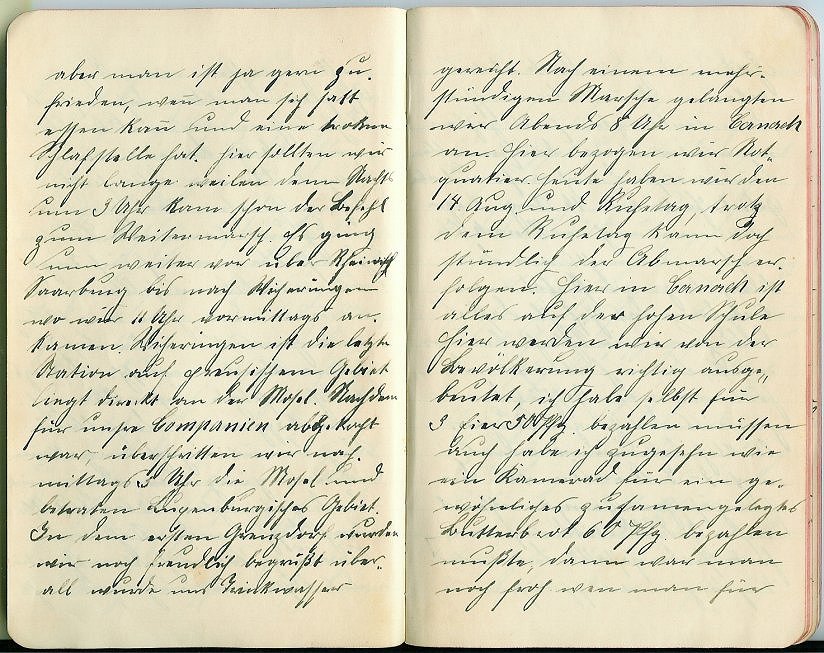 aber man ist ja gern zu-
frieden, wen̄ man sich satt
essen kan̄ und eine trokene
Schlafstelle hat. Hier sollten wir
nicht lange weilen denn Nachts
um 3 Uhr kam schon der Befehl
zum Weitermarsch. Es ging
nun weiter vor über Rheinisch
Saarburg bis nach Wicheringen
wo wir 11 Uhr vormittags an-
kamen. Wicheringen ist die letzte
Station auf preusischem Gebiet
liegt direckt an der Mosel. Nachdem
für unsre Companien abgekocht
war, überschritten wir nach-
mittags 5 Uhr die Mosel und
betraten Luxenburgisches Gebiet.
In dem ersten Grenzdorf wurden
wir noch freudlich begrüßt über-
all wurde uns Trinkwasser
gereicht. Nach einem mehr-
stündigen Marsche gelangten
wir Abends 8 Uhr in Canach
an. Hier bezogen wir Not-
quatier. Heute haben wir den
14 Aug. und Ruhetag, trotz
dem Ruhetag kann doch
stündlich der Abmarsch er-
folgen. Hier in Canach ist
alles auf der hohen Schule
Hier werden wir von der
Bevölkerung richtig ausge-
beutet, ich habe selbst für
3 Eier 50 Pfg. bezahlen müssen
auch habe ich zugesehn wie
ein Kamerad für ein ge-
wöhnliches zusamengelegtes
Butterbrot 60 Pfg. bezahlen
mußte, dann war man
noch froh wen man für